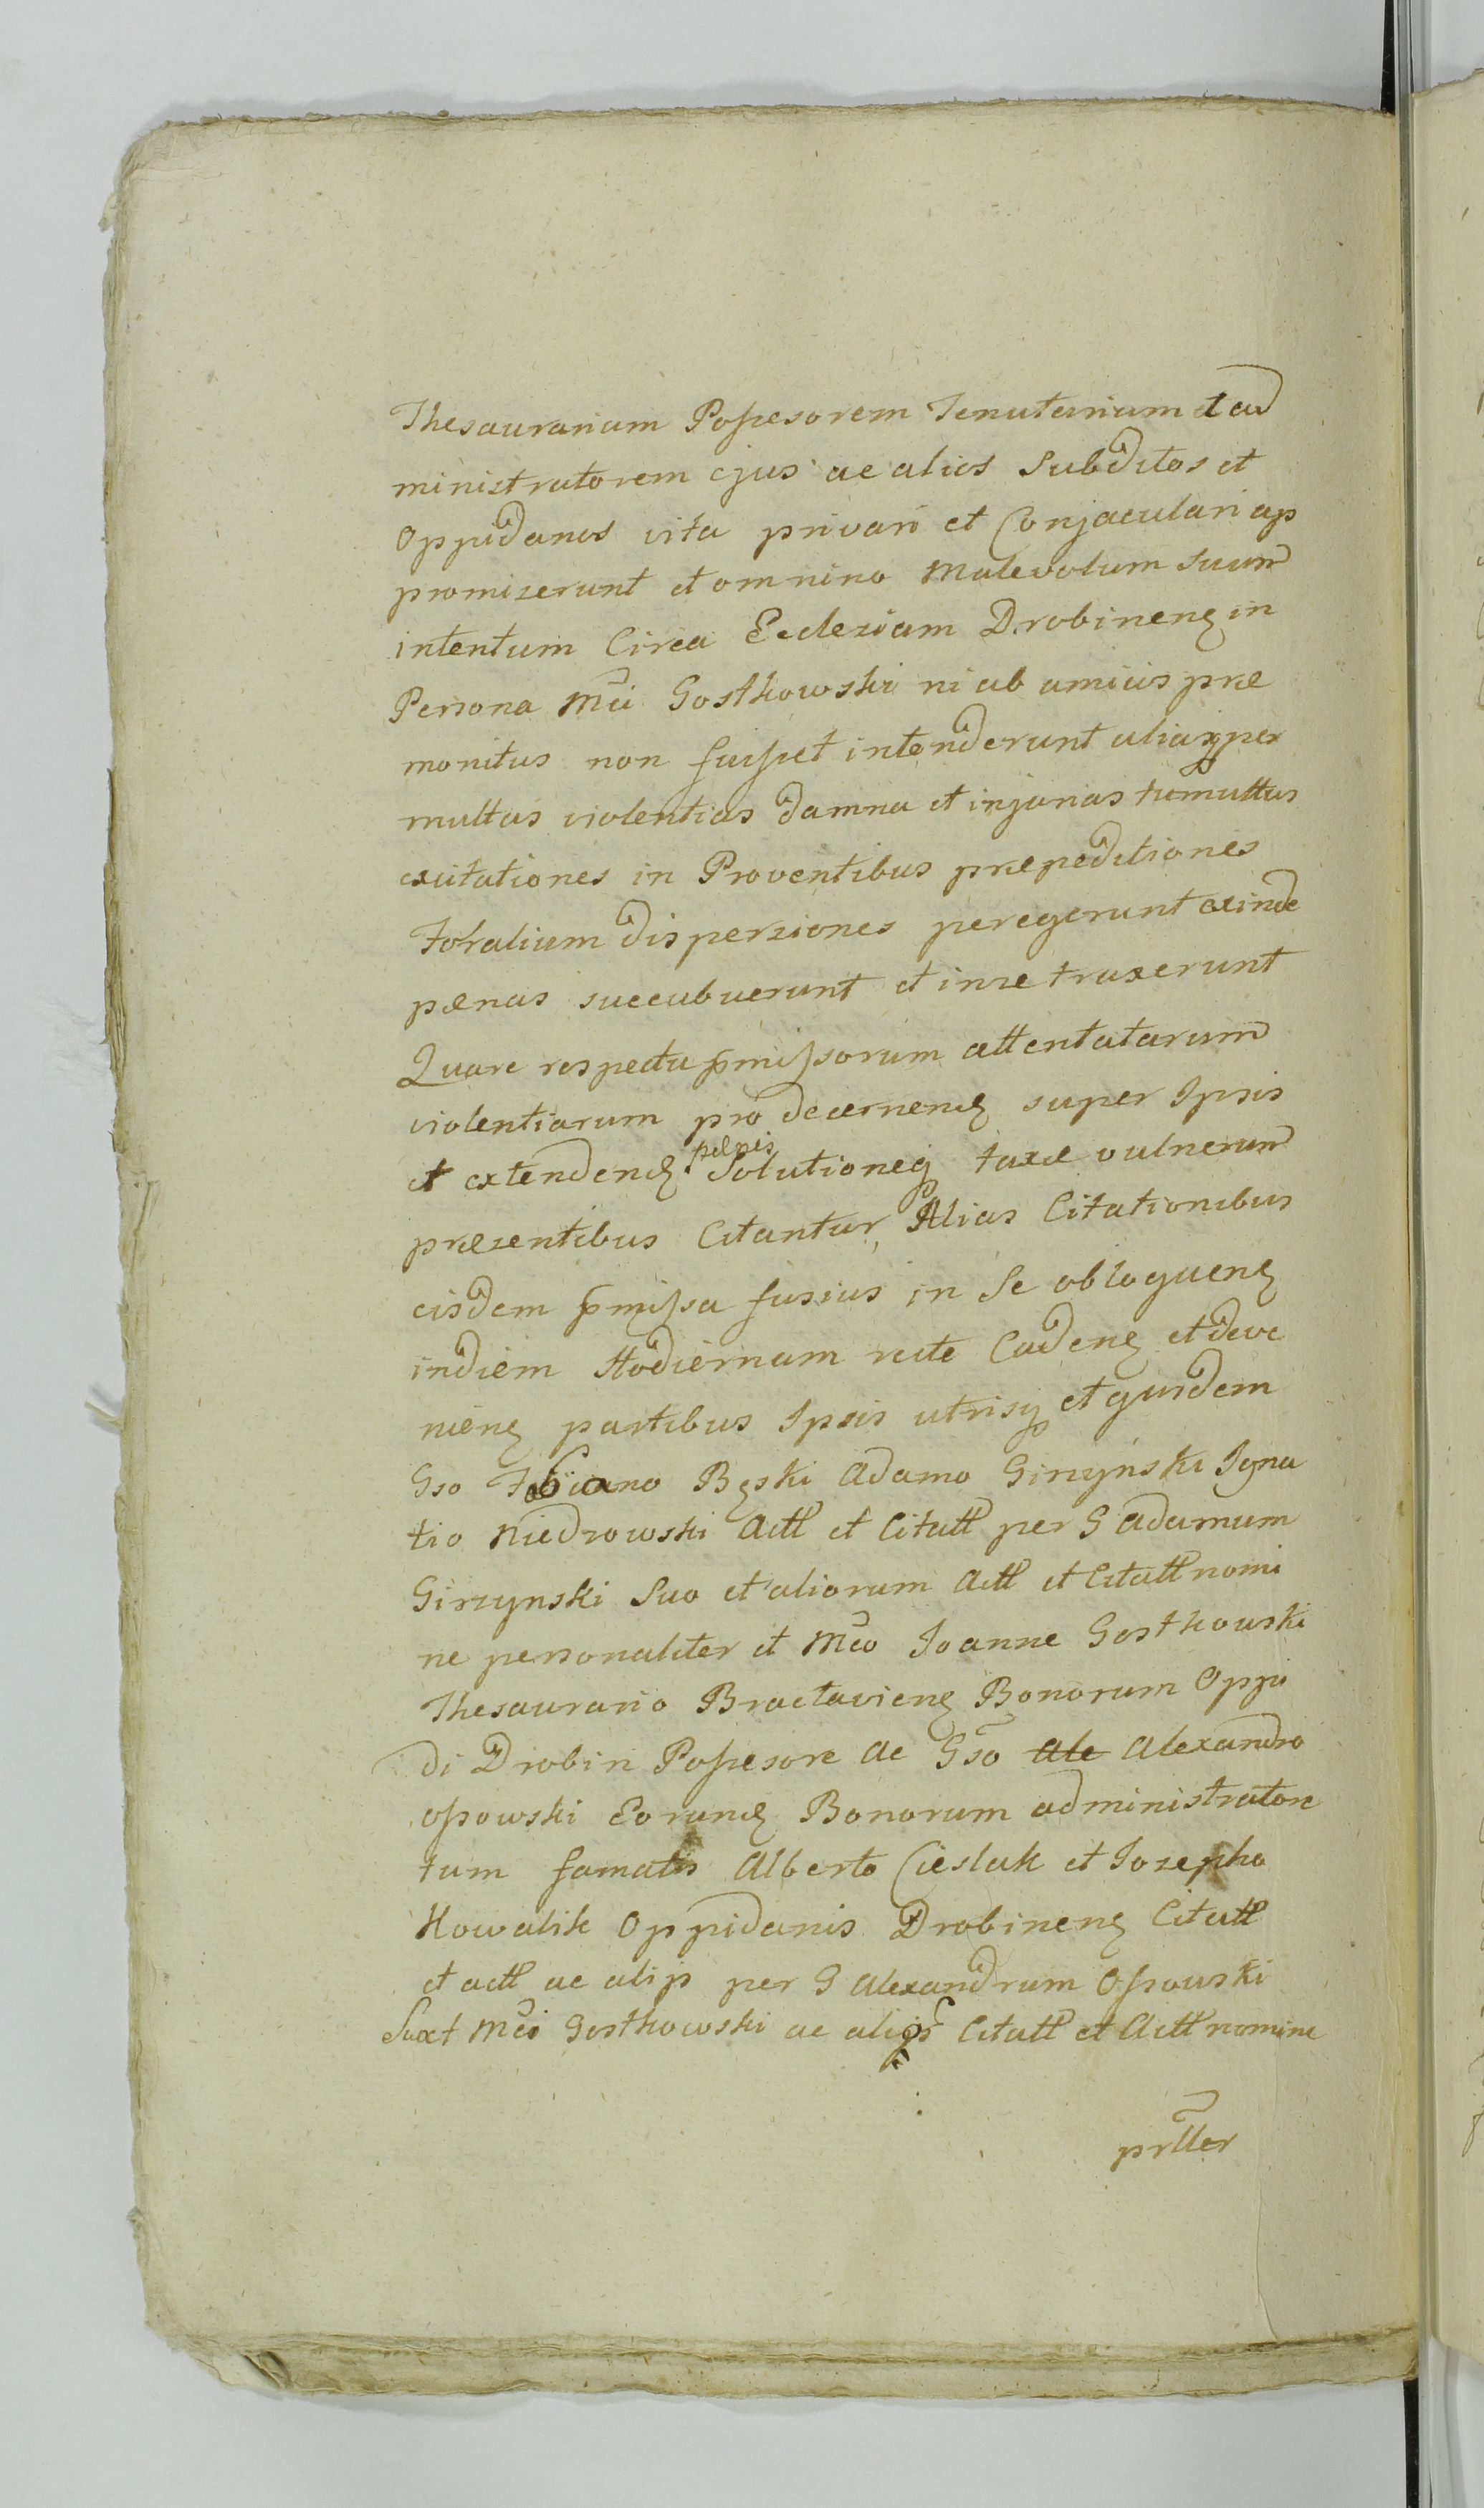 Thesaurarium Possesorem Tenutarium et ad
ministratorem ejus ac alios Subditos et
Oppidanos vita privari et Conjaculari ap
promiserunt et omnino Malevolum Suum
intentum Circa Eccleziam Drobinenę in
Persona Mci Gostkowski ni ab amicis præ
monitus non fuisset intenderunt aliasq per
multas violentias damna et injurias tumultus
excitationes in Proventibus præpeditiones
Foralium disperziones peregerunt exinde
pænas succubuerunt et in se traxerunt
Quare respectu pmissorum attentatarum
violentiarum pro decernendę super Ipsis
et extendendę pænis Solutioneq taxæ vulnerum
præzentibus Citantur Alias Citationibus
eisdem pmissa fusius in Se obloquenę
in diem Hodiernam recte Cadenę et deve
nienę partibus Ipsis utrisq et quidem
Gso Fabiano Bęski Adamo Girzyński Igna
tio Niedrowski Actt et Citatt per G Adamum
Girzynski Suo et aliorum Actt et Citatt nomi
ne personaliter et Mco Joanne Gostkowski
Thesaurario Bractavienę Bonorum Oppi
di Drobin Possesore ac Gso Ale Alexandro
Ossowski Eorundę Bonorum administratore
tum famatis Alberto Cieslak et Jozepho
Kowalik Oppidanis Drobinenę Citatt
et actt ac alijs per G Alexandrum Ossowski
Suo et Mci Gostkowski ac alijs Citatt et Actt nomine
prller